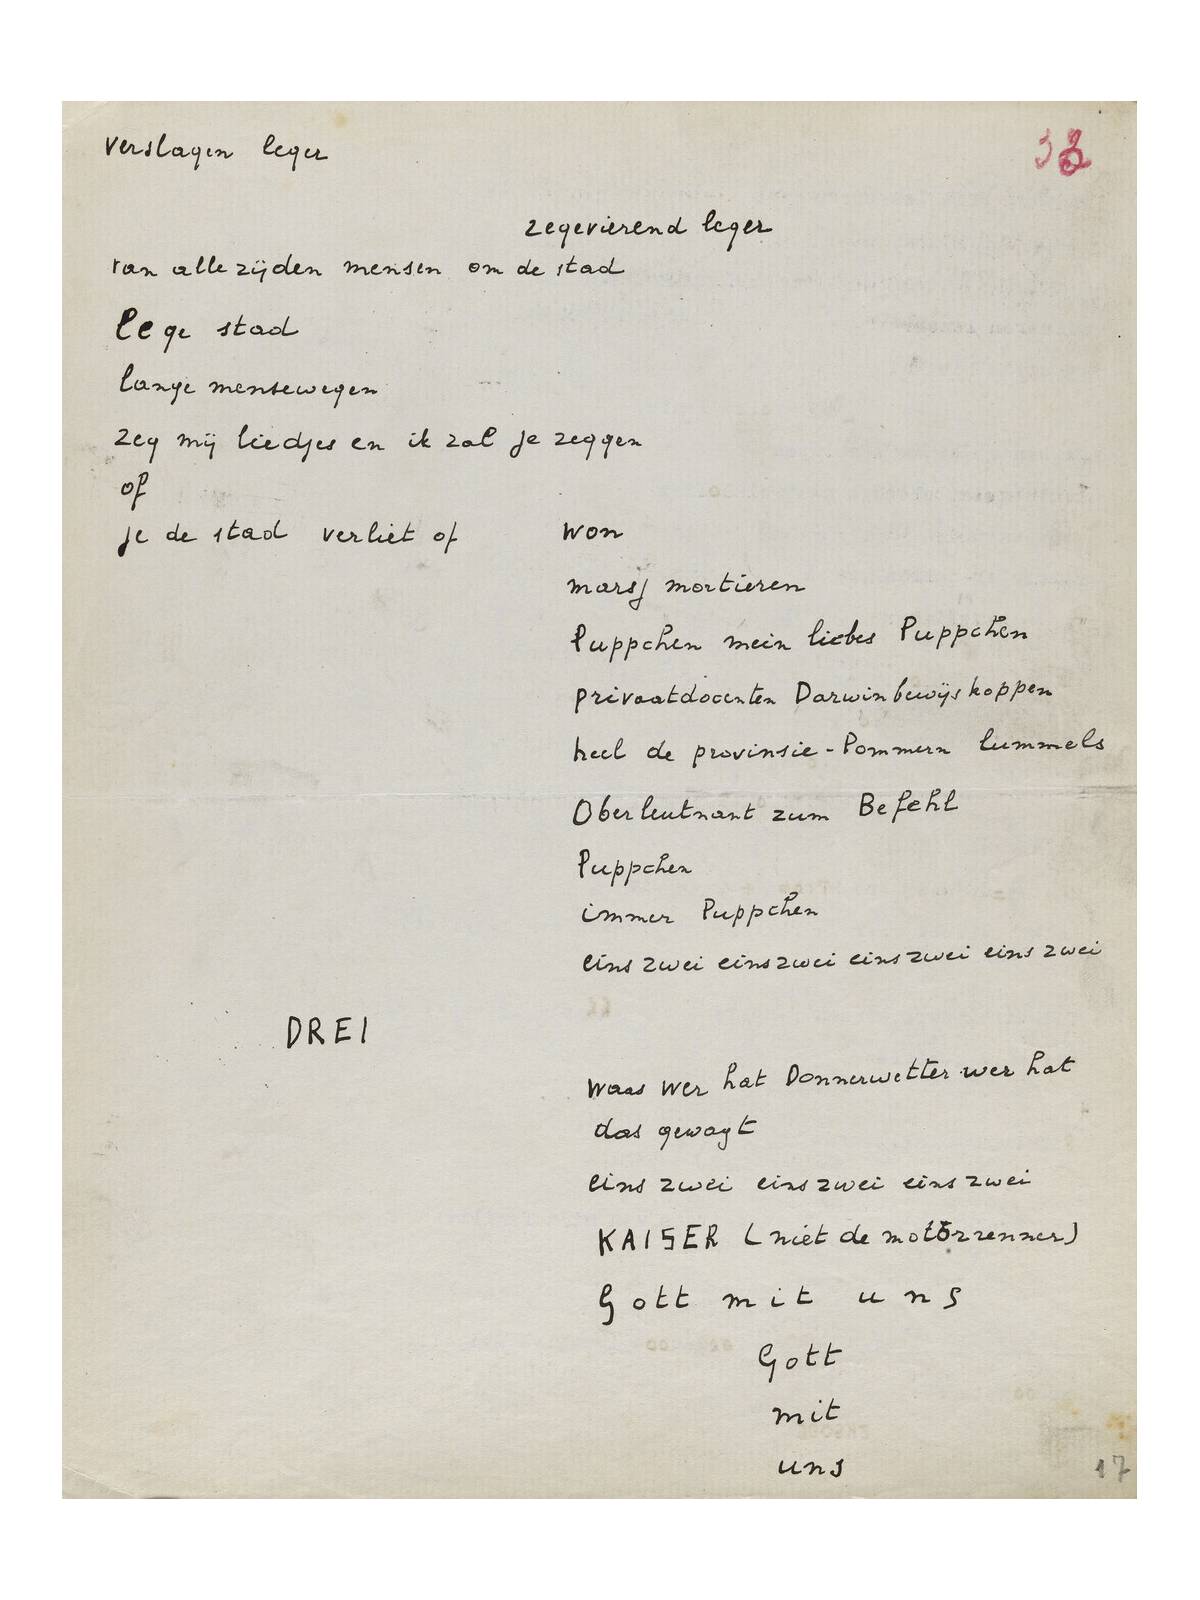 verslagen leger
38
zegevierend leger
van alle zijden mensen om de stad
lege stad
lange mensewegen
zeg mij liedjes en ik zal je zeggen
of
je de stad verliet of won
marsj mortieren
Puppchen mein liebes Puppchen
privaatdocenten Darwinbewijskoppen
heel de provinsie-Pommern lummels
Oberleutnant zum Befehl
Puppchen
immer Puppchen
eins zwei eins zwei eins zwei eins zwei
DREI
Waas wer hat Donnerwetter wer hat
das gewagt
eins zwei eins zwei eins zwei
KAISER (niet de motorrenner)
Gott mit uns
Gott
mit
uns
17